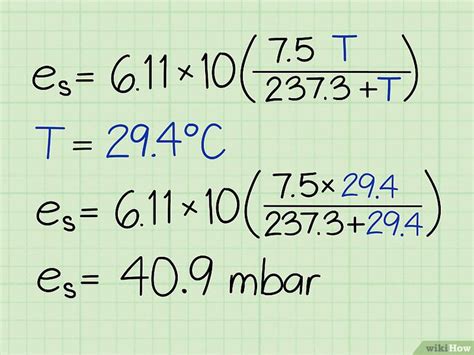 eₛ = 6.11 × 10(7.5 T / 237.3 + T)
T = 29.4°C
eₛ = 6.11 × 10(7.5 × 29.4 / 237.3 + 29.4)
eₛ = 40.9 mbar
wikiHow